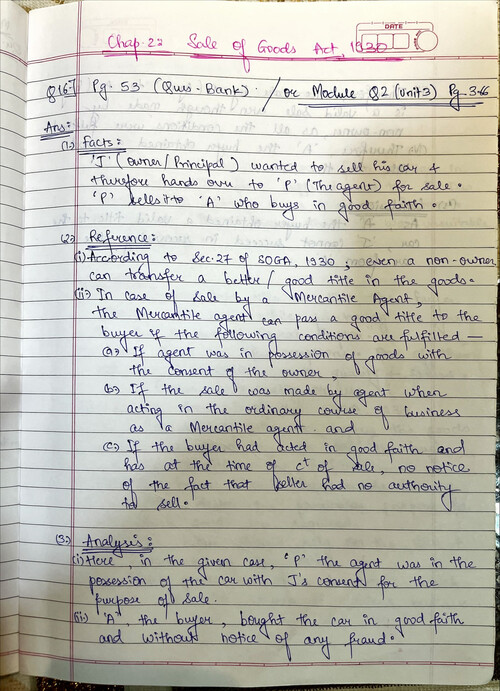 DATE
Chap. 22 Sale of Goods Act, 1930
Q16:-] Pg. 53 (Ques-Bank). / or Module Q2 (Unit 3) Pg. 3.66
Ans:
(1.) Facts:
'J' (Owner/Principal) wanted to sell his car &
therefore hands over to 'P' (The agent) for sale.
'P' sells it to 'A' who buys in good faith.
(2.) Reference:
(i) According to Sec. 27 of SOGA, 1930, even a non-owner
can transfer a better/good title in the goods.
(ii) In case of Sale by a Mercantile Agent,
the Mercantile agent can pass a good title to the
buyer if the following conditions are fulfilled —
(a) If agent was in possession of goods with
the consent of the owner,
(b) If the sale was made by agent when
acting in the ordinary course of business
as a Mercantile agent. and
(c) If the buyer had acted in good faith and
has at the time of ct of sale, no notice
of the fact that seller had no authority
to sell.
(3.) Analysis:
(i) Here, in the given case, 'P' the agent was in the
possession of the car with J's consent for the
purpose of Sale.
(ii) 'A', the buyer, bought the car in good faith
and without notice of any fraud.